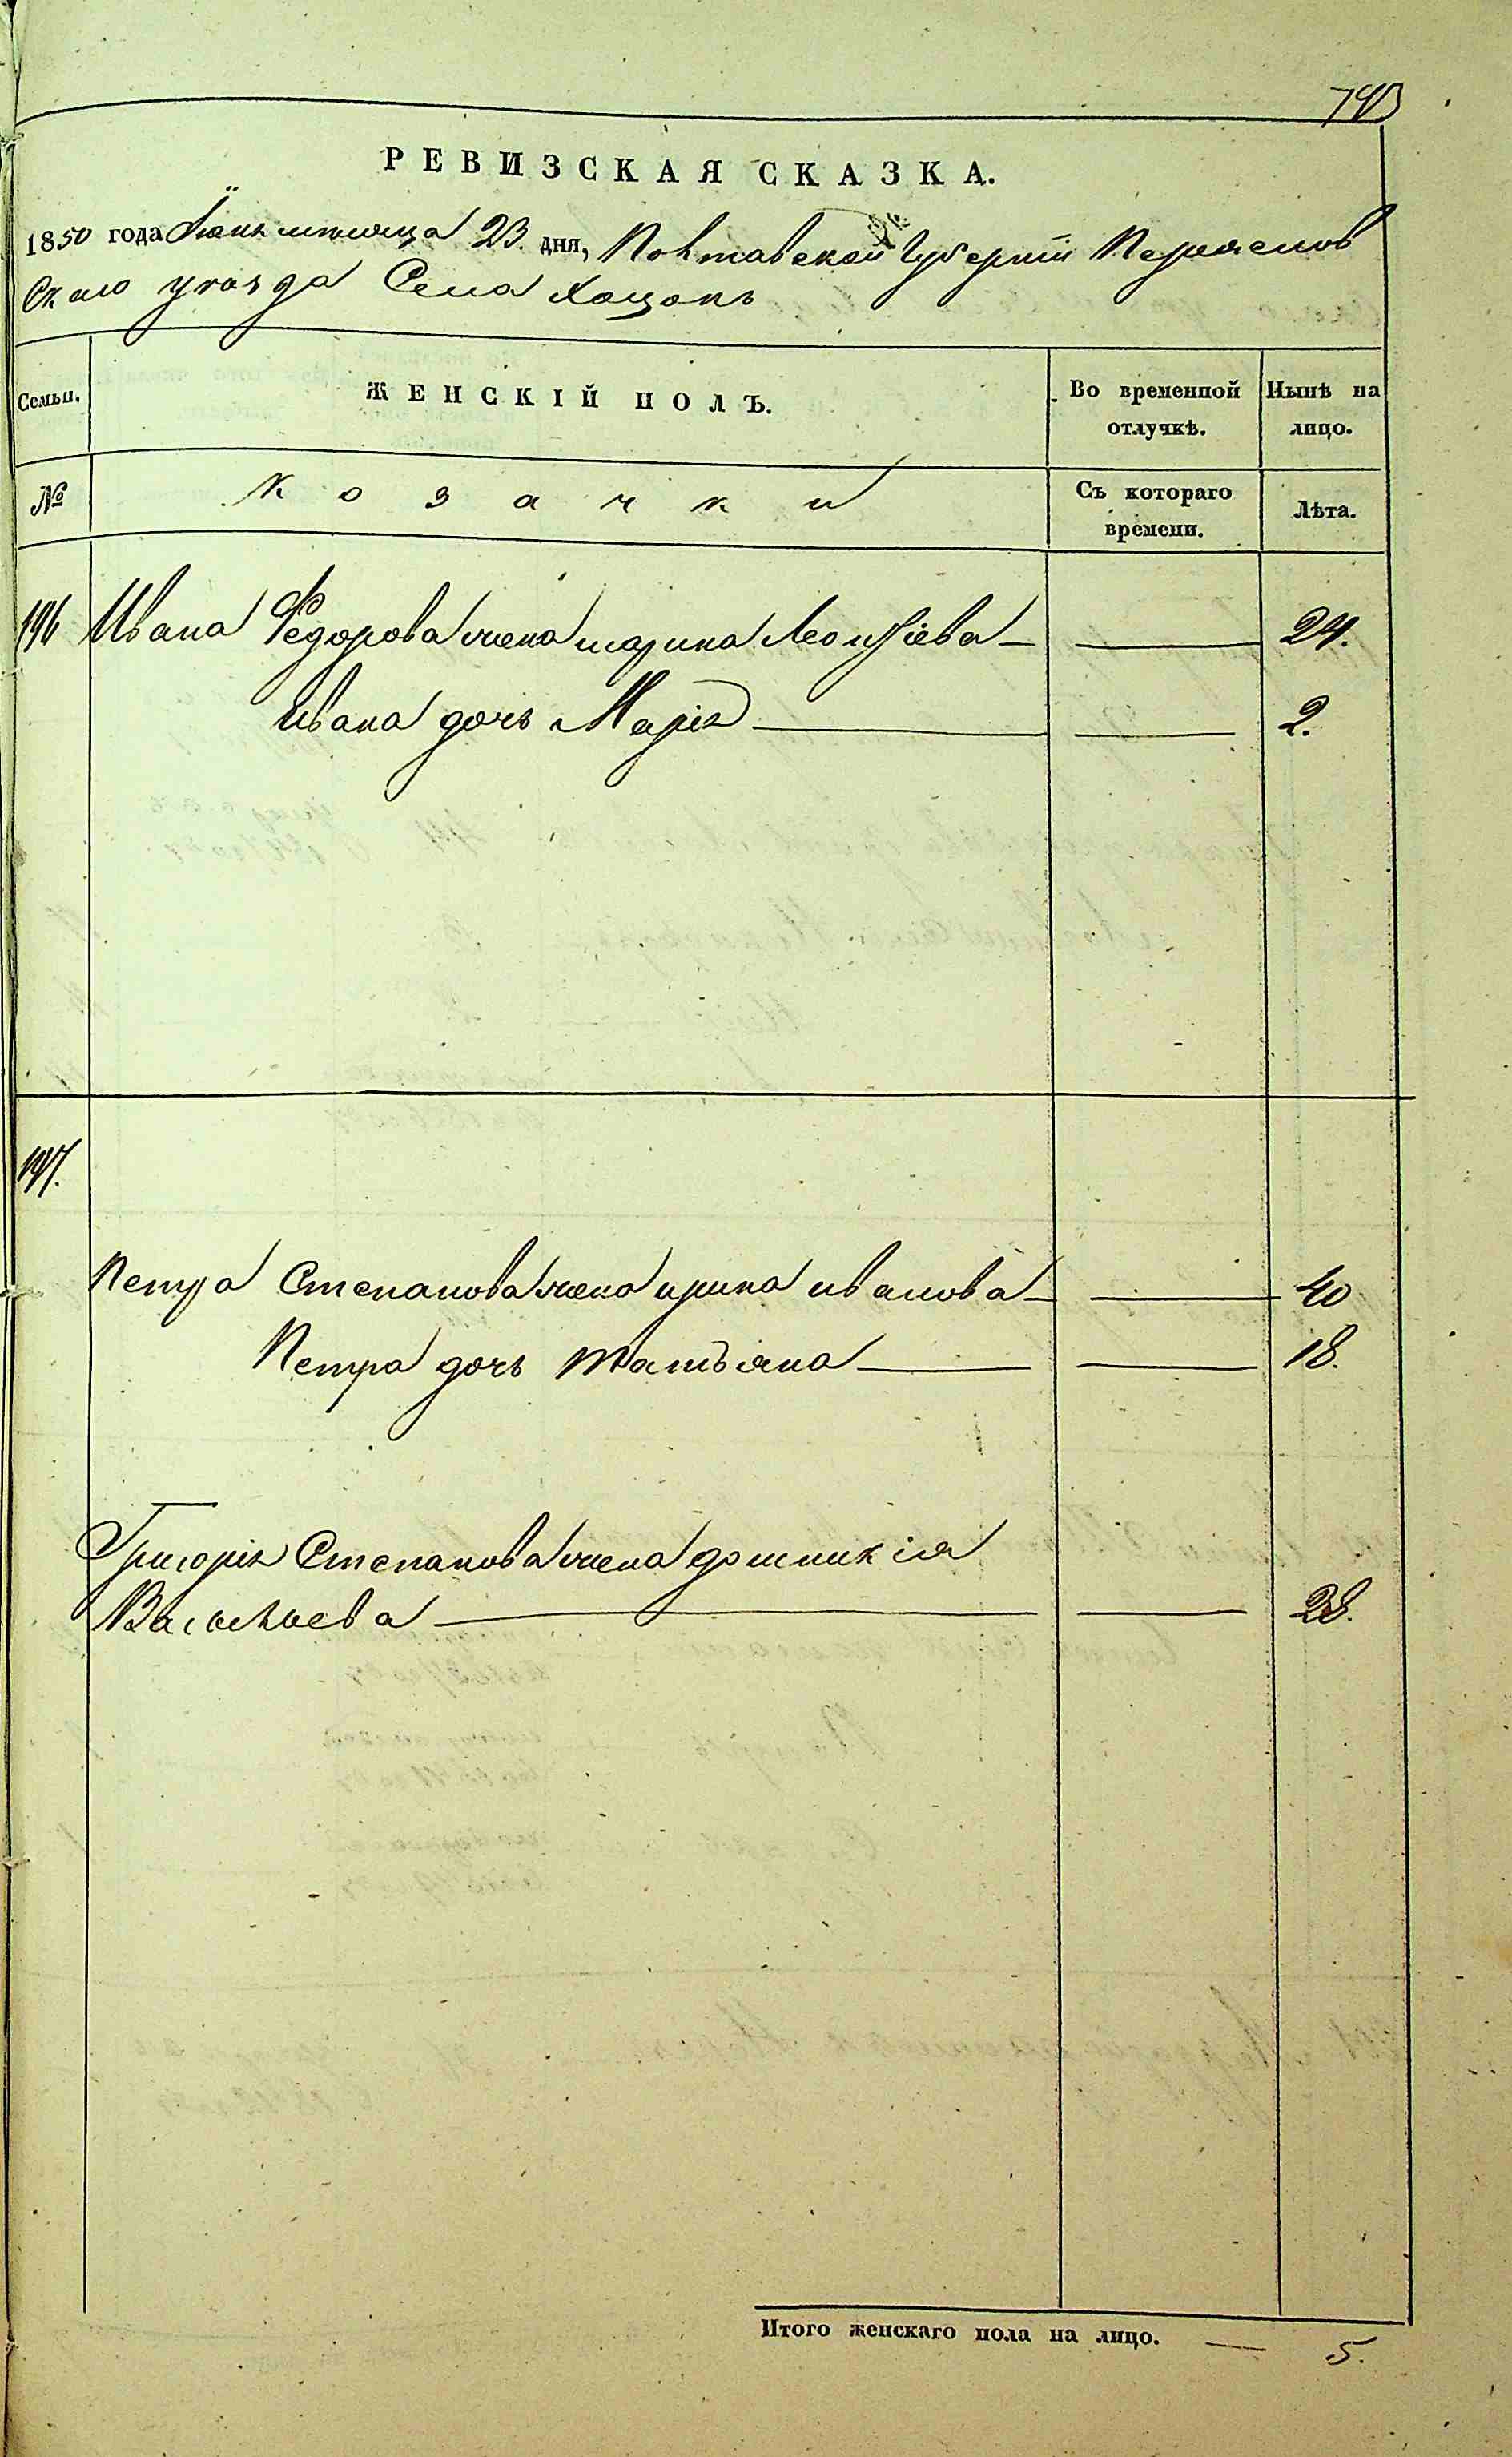 743
РЕВИЗСКАЯ СКАЗКА.
1850 года Іюня мѣсяца 23. дня, Полтавской Губерніи Переяслов
скаго уѣзда Села Хоцокъ
Семьи.
ЖЕНСКІЙ ПОЛЪ.
Во временной отлучкѣ.
Нынѣ на лицо.
№
Козачки
Съ котораго времени.
Лѣта.
196 Ивана Федорова жена марина Леонтіева — — 24.
Ивана дочь Марія — — 2.
197.
Петра Степанова жена ирина иванова — — 40
Петра дочь татьяна — — 18.
Григорія Степанова жена домникія
Васильева — — 28.
Итого женскаго пола на лицо. — 5.